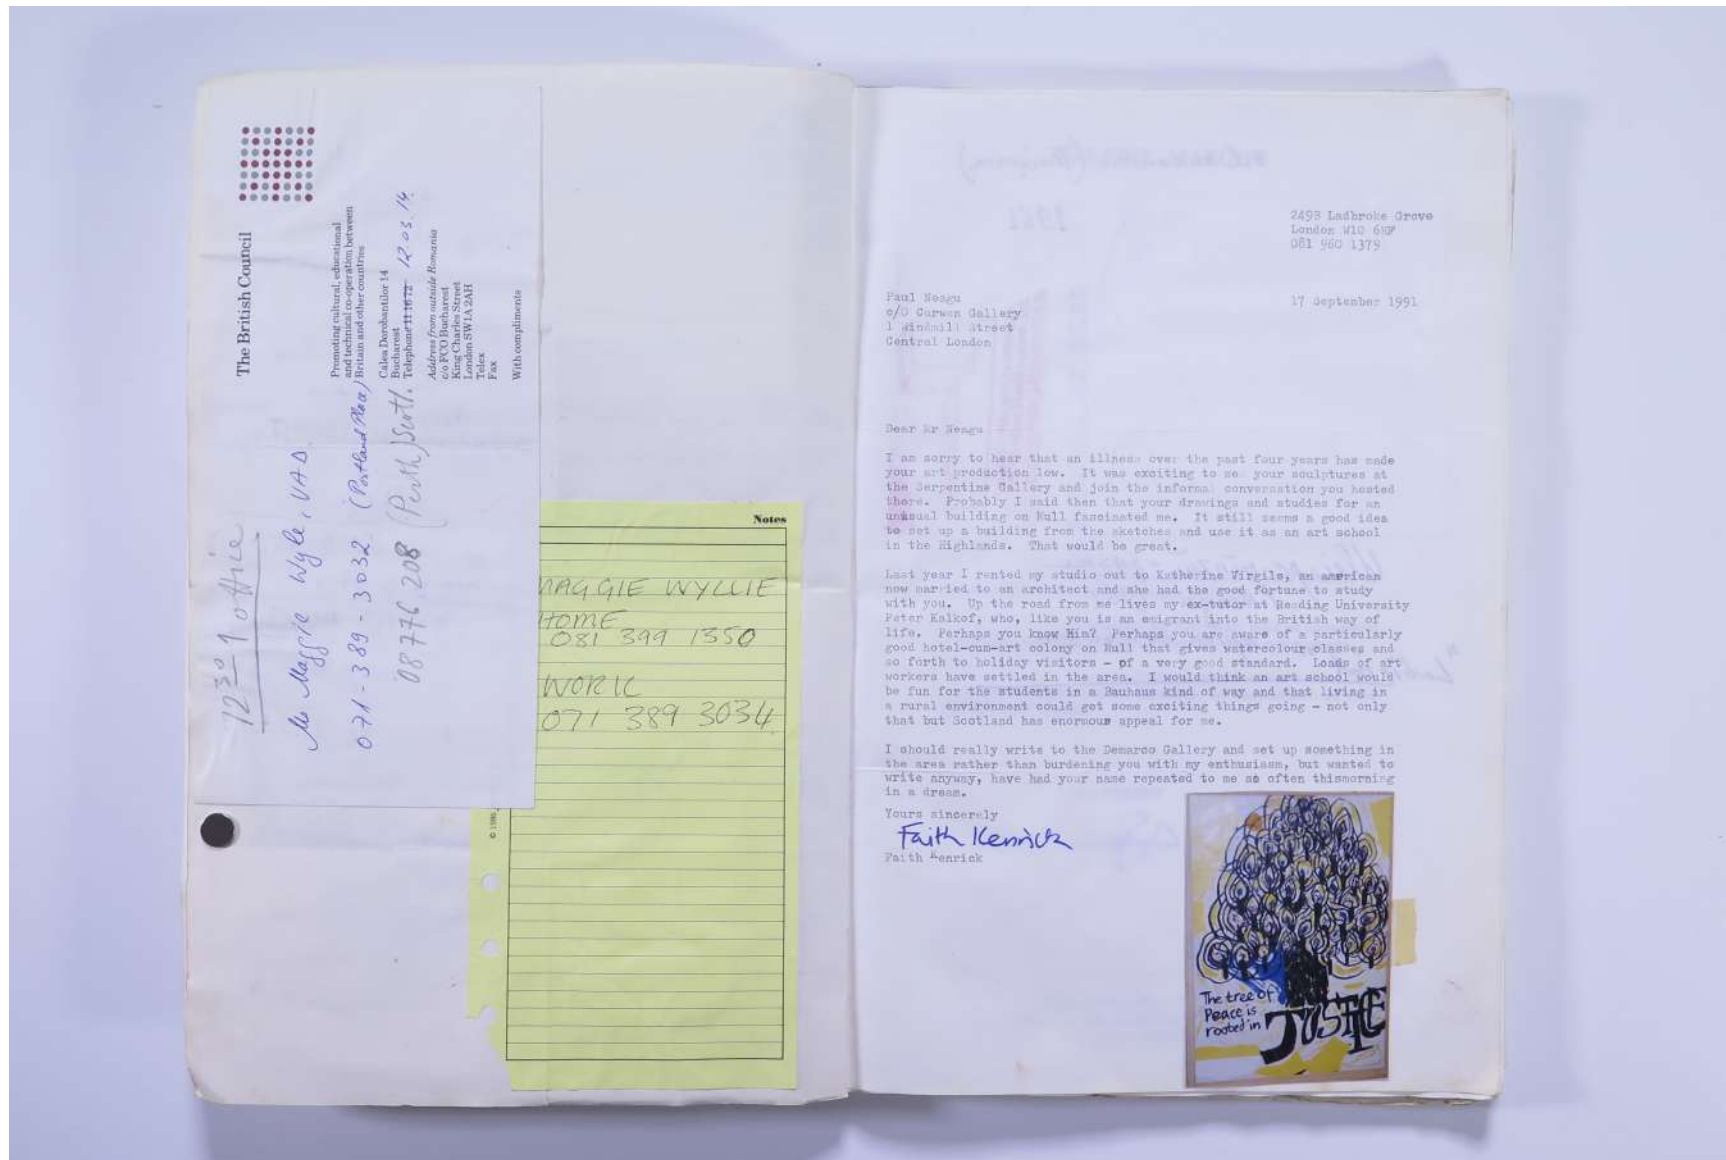 The British Council
Promoting cultural, educational
and technical co-operation between
Britain and other countries
Calea Dorobantilor 14
Bucharest
Telephone 11 16 12.03.14.
Address from outside Romania
c/o FCO Bucharest
King Charles Street
London SW1A 2AH
Telex
Fax
With compliments
12³⁰ - 1 office
Ms Maggie Wyle, VAD
071-389-3032 (Portland Place)
08776 208 (Perth) Scotl.
Notes
MAGGIE WYLLIE
HOME
081 399 1350
WORK
071 389 3034
© 1986
1981
249B Ladbroke Grove
London W10
081 960 1379
17 September 1991
Paul Neagu
c/o Curwen Gallery
1 Windmill Street
Central London
Dear Mr Neagu
I am sorry to hear that an illness over the past four years has made
your art production low. It was exciting to see your sculptures at
the Serpentine Gallery and join the informal conversation you hosted
there. Probably I said then that your drawings and studies for an
unusual building on Mull fascinated me. It still seems a good idea
to set up a building from the sketches and use it as an art school
in the Highlands. That would be great.
Last year I rented my studio out to Katherine Virgils, an american
now married to an architect and she had the good fortune to study
with you. Up the road from me lives my ex-tutor at Reading University
Peter Kalkof, who, like you is an emigrant into the British way of
life. Perhaps you know Him? Perhaps you are aware of a particularly
good hotel-cum-art colony on Mull that gives watercolour classes and
so forth to holiday visitors - of a very good standard. Loads of art
workers have settled in the area. I would think an art school would
be fun for the students in a Bauhaus kind of way and that living in
a rural environment could get some exciting things going - not only
that but Scotland has enormous appeal for me.
I should really write to the Demarco Gallery and set up something in
the area rather than burdening you with my enthusiasm, but wanted to
write anyway, have had your name repeated to me so often thismorning
in a dream.
Yours sincerely
Faith Kenrick
Faith Kenrick
The tree of
Peace is
rooted in
JUSTICE